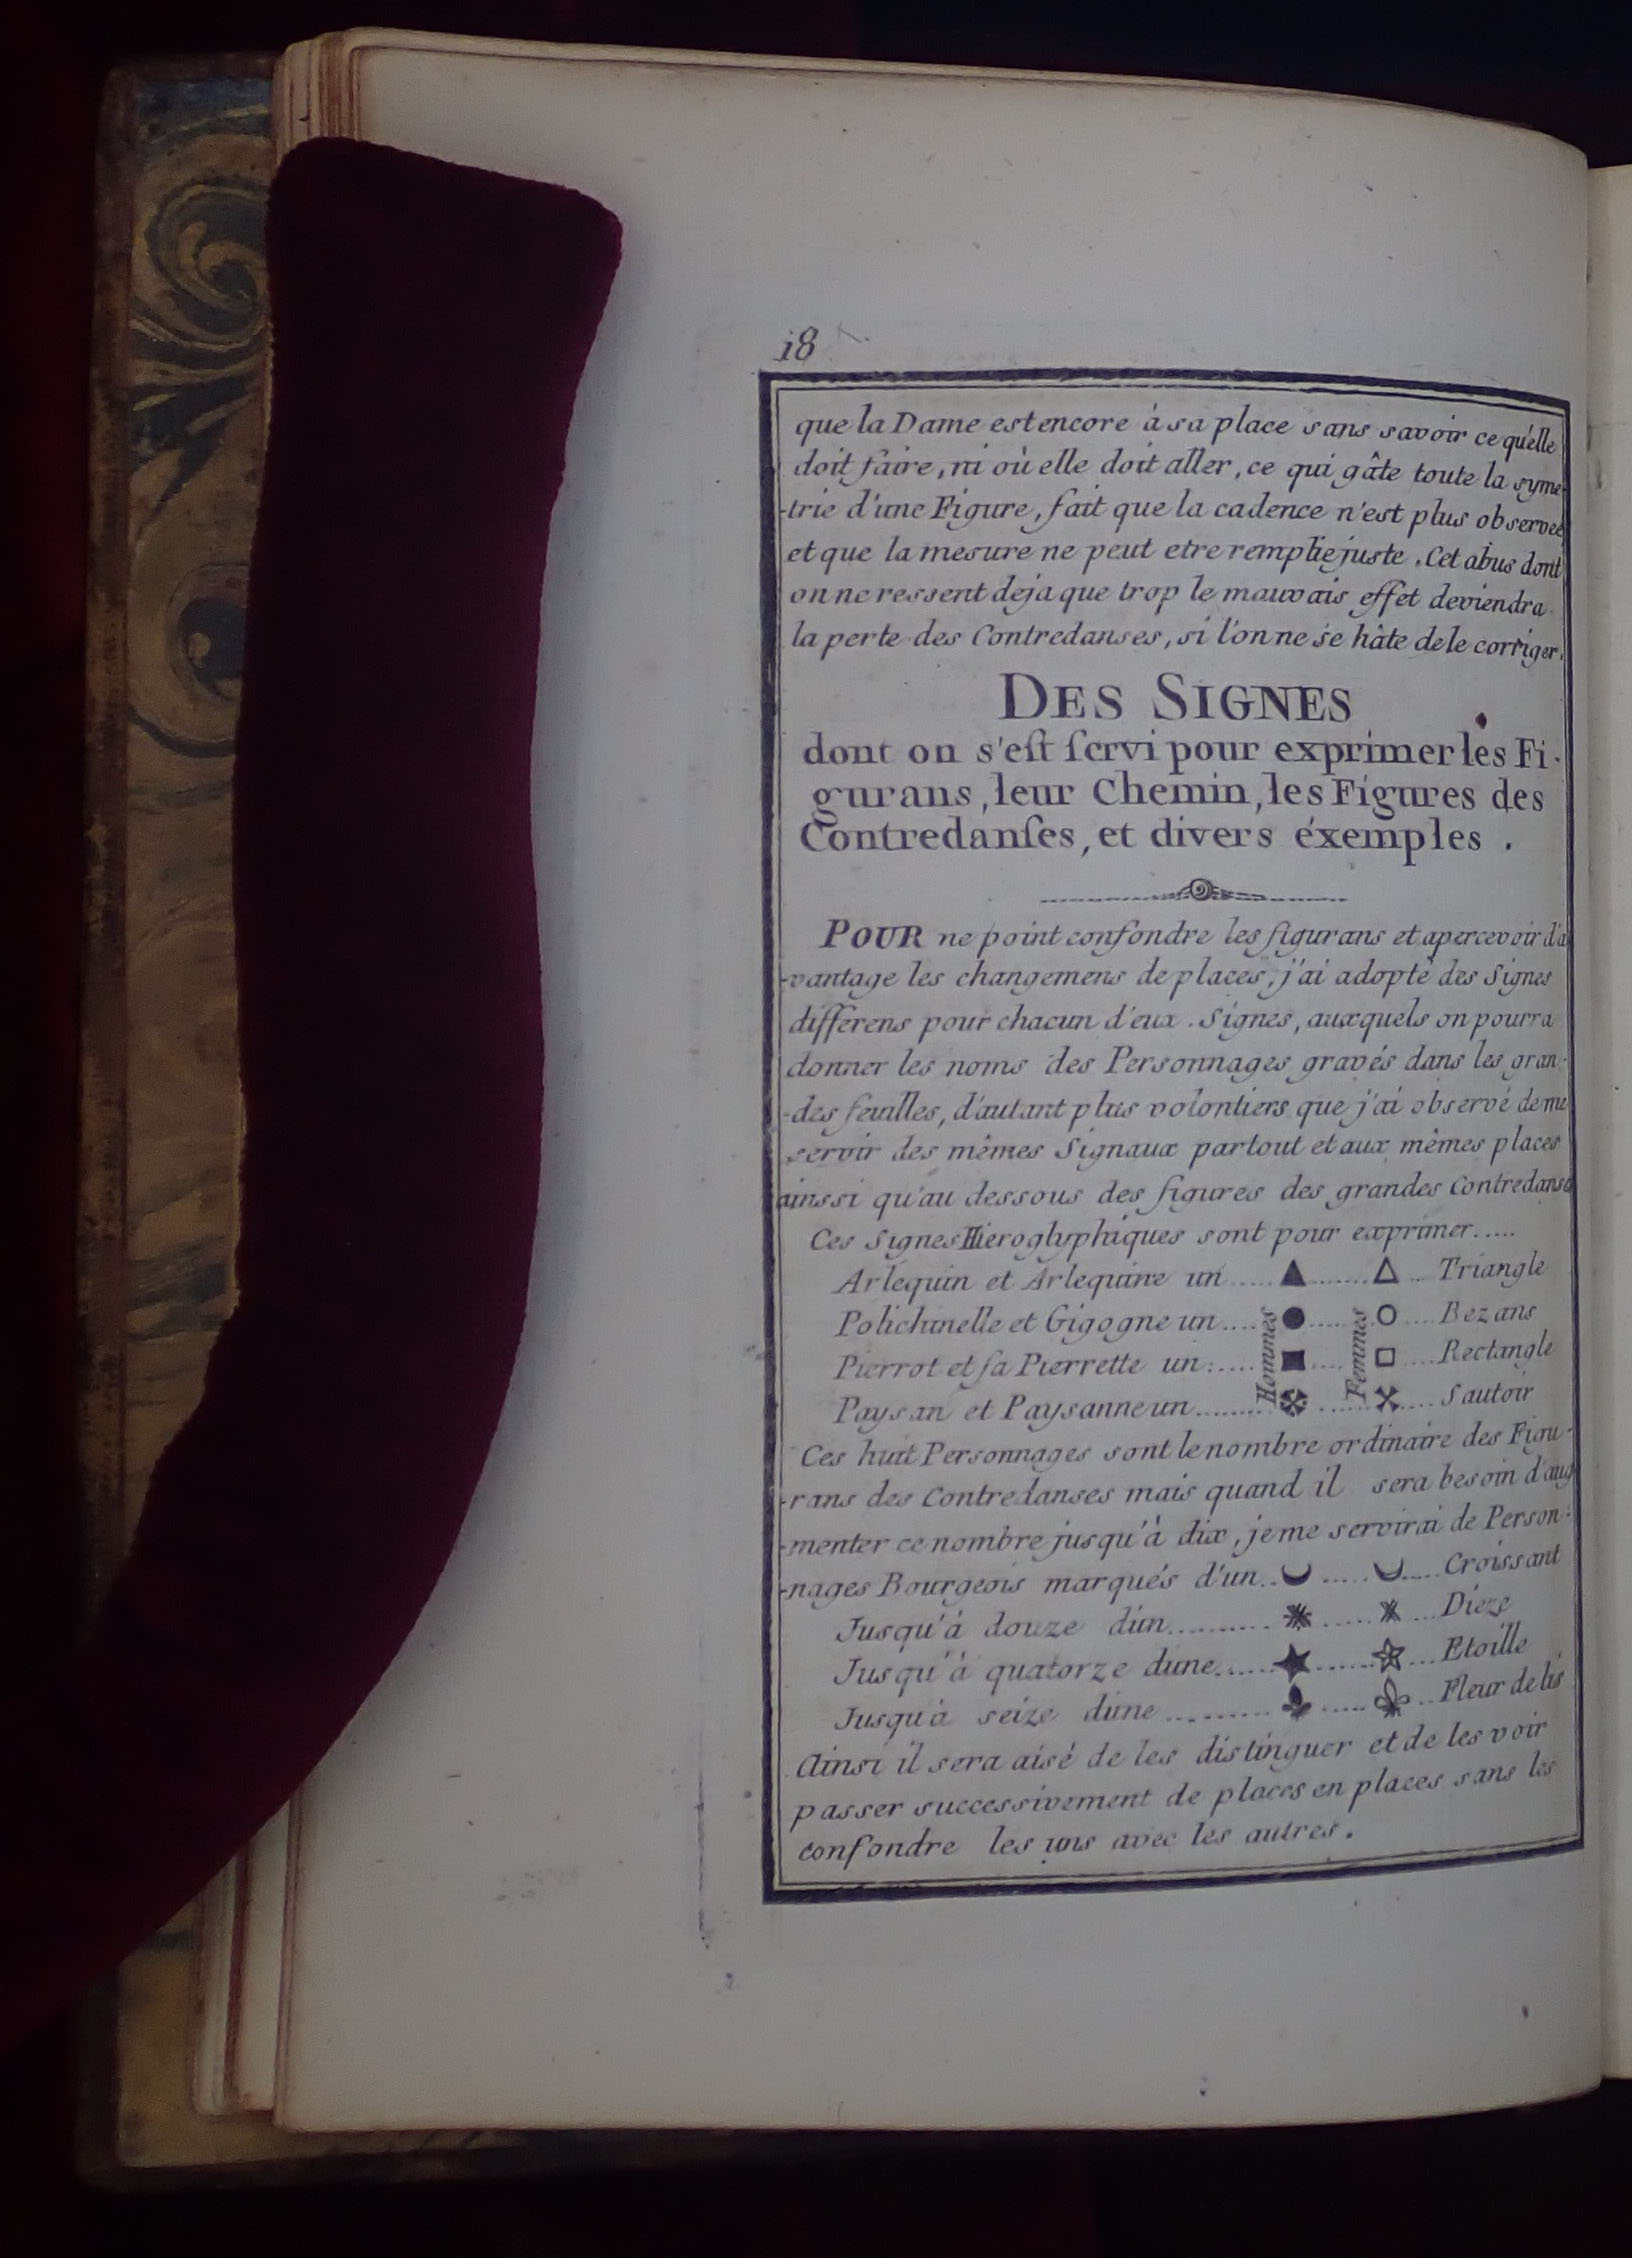 i8
que la Dame est encore à sa place sans savoir ce qu'elle
doit faire, ni où elle doit aller, ce qui gâte toute la syme-
-trie d'une Figure, fait que la cadence n'est plus observeé
et que la mesure ne peut etre remplie juste. Cet abus dont
on ne ressent deja que trop le mauvais effet deviendra
la perte des Contredanses, si l'on ne se hâte de le corriger.
DES SIGNES
dont on s'eſt ſervi pour exprimer les Fi-
gurans, leur Chemin, les Figures des
Contredanſes, et divers éxemples.
POUR ne point confondre les figurans et apercevoir d'a
-vantage les changemens de places, j'ai adopté des Signes
differens pour chacun d'eux. Signes, auxquels on pourra
donner les noms des Personnages gravés dans les gran-
-des feuilles, d'autant plus volontiers que j'ai observé de me
servir des mêmes Signaux partout et aux mêmes places
ainssi qu'au dessous des figures des grandes Contredanses
Ces Signes Hieroglyphiques sont pour exprimer.....
Arlequin et Arlequine un ..... ▲ ........ △ ... Triangle
Polichinelle et Gigogne un .... ● ....... ○ .... Bezans
Pierrot et ſa Pierrette un ..... ■ .... □ .... Rectangle
Paysan et Paysanne un ......... ...... .... Sautoir
Hommes
Femmes
Ces huit Personnages sont le nombre ordinaire des Figu-
-rans des Contredanses mais quand il sera besoin d'aug
-menter ce nombre jusqu'à dix, je me servirai de Person-
-nages Bourgeois marqués d'un ... ..... ..... Croissant
Jusqu'à douze d'un .......... ...... ... Dieze
Jusqu'à quatorze dune ...... ★ ....... ☆ ... Etoille
Jusqu'à seize dune .......... ..... .. Fleur de lis
Ainsi il sera aisé de les distinguer et de les voir
passer successivement de places en places sans les
confondre les uns avec les autres.